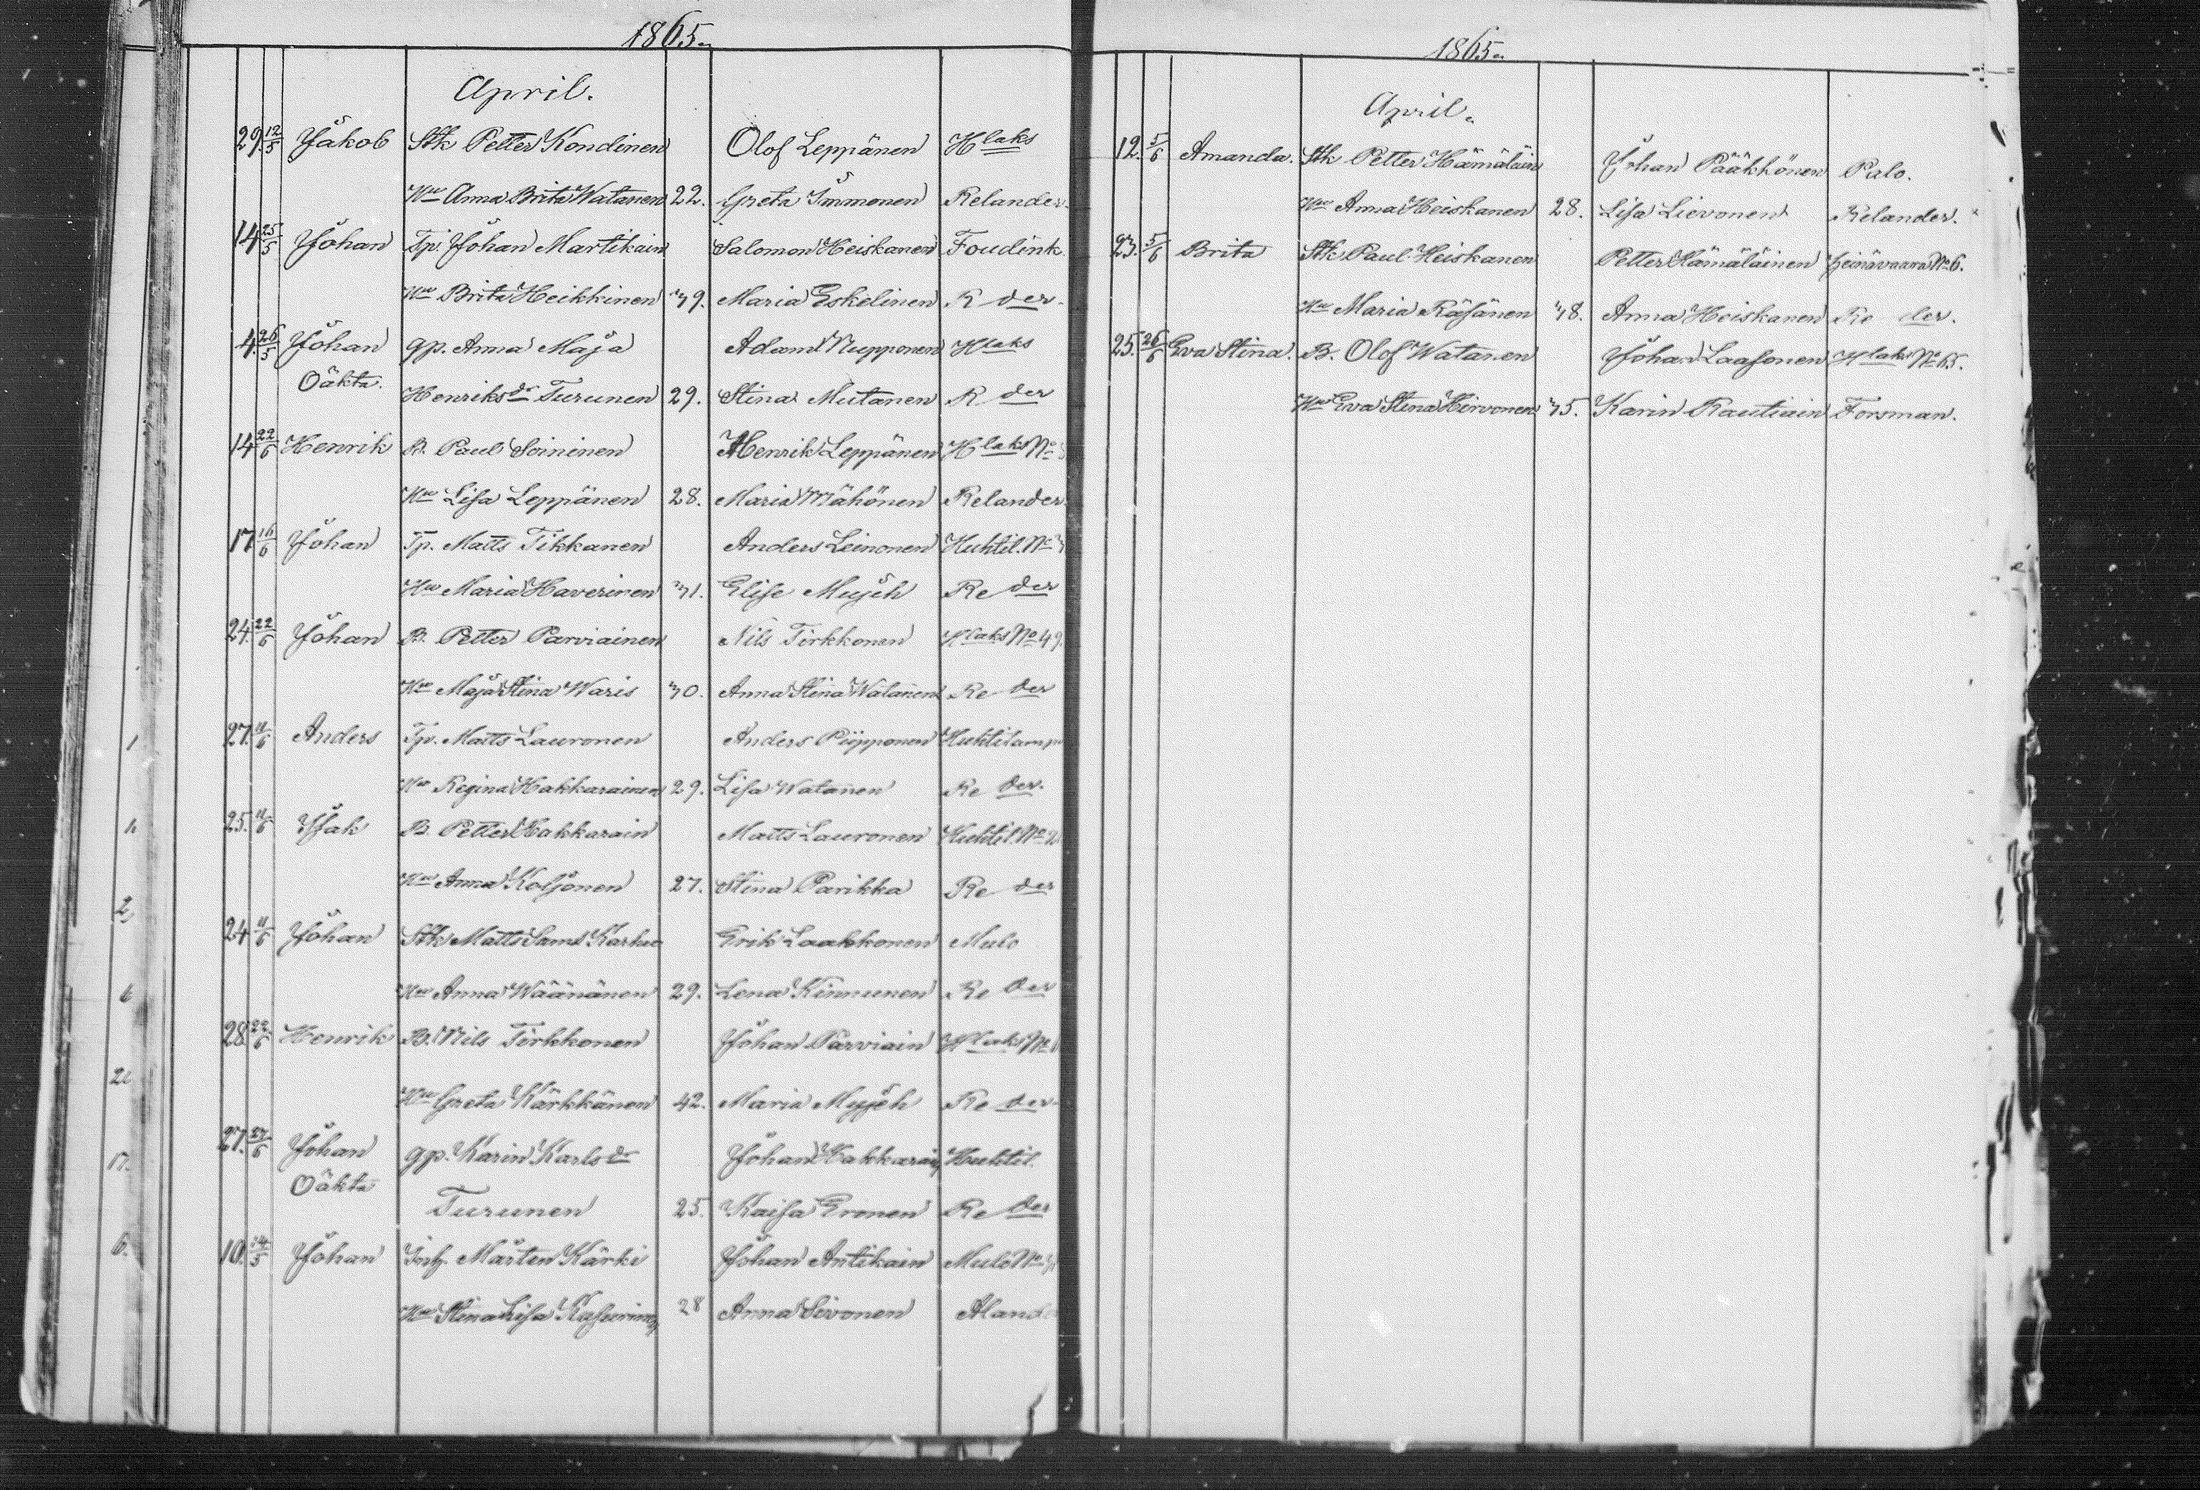 1865.
April.
29. 12/5 Jakob Stk Petter Kondinen Olof Leppänen Hlaks
Hu Anna Brita Watanen 22. Greta Immonen Relander.
14 25/5 Johan Tp. Johan Martikain Salomon Heiskanen Foudink
Hu Brita Heikkinen 39. Maria Eskelinen R der.
4. 26/5 Johan gp. Anna Maja Adam Nupponen Hlaks
Oäkta. Henriksdr Turunen 29. Stina Mutanen R der
14 22/6 Henrik B. Paul Soininen Henrik Leppänen Hlaks No
Hu Lisa Leppänen 28. Maria Mähönen Relander.
17 16/6 Johan Tp. Matts Tikkanen Anders Leinonen Huhtil. No
Hu Maria Haverinen 31. Elise Mujeh Re der
24. 22/6 Johan B. Petter Parviainen Nils Tirkkonen Hlaks No 49.
Hu Maja Stina Waris 30. Anna Stina Watanen Re der
27. 11/6 Anders Tp. Matts Lauronen Anders Piipponen Huhtilamp
Hu Regina Hakkarainen 29. Lisa Watanen Re der.
25. 11/6 Isak B. Petter Hakkarain Matts Lauronen Huhtil. No
Hu Anna Koljonen 27. Stina Parikka Re der
24 11/6 Johan Stk Matts Sams Karhu Erik Laakkonen Mulo
Hu Anna Wäänänen 29. Lena Kinnunen Re der
28. 22/6 Henrik B. Nils Tirkkonen Johan Parviain Hlaks No
Hu Greta Kärkkänen 42. Maria Mujeh Re der.
27. /6 Johan gp. Karin Karlsdr Johan Hakkarain Huhtil.
Oäkta Turunen 25. Kaisa Eronen Re der
10. 14/5 Johan Inh. Mårten Kärki Johan Antikain Mulo No
Hu Stina Lisa Kasurinen 28 Anna Sivonen Aland
1865.
April.
12. 5/6 Amanda. Stk Petter Hämäläin Johan Pääkkönen Palo.
Hu Anna Heiskanen 28. Lisa Lievonen Relander.
23. 5/6 Brita Stk Paul Heiskanen Petter Hämäläinen Heinävaara No 6.
Hu Maria Räsänen 38. Anna Heiskanen Re der.
25. 26/6 Eva Stina. B. Olof Watanen Johan Laasonen Hlaks No 65.
Hu Eva Stina Hirvonen 35. Karin Rautiain Forsman.
1
2
6
17.
6.